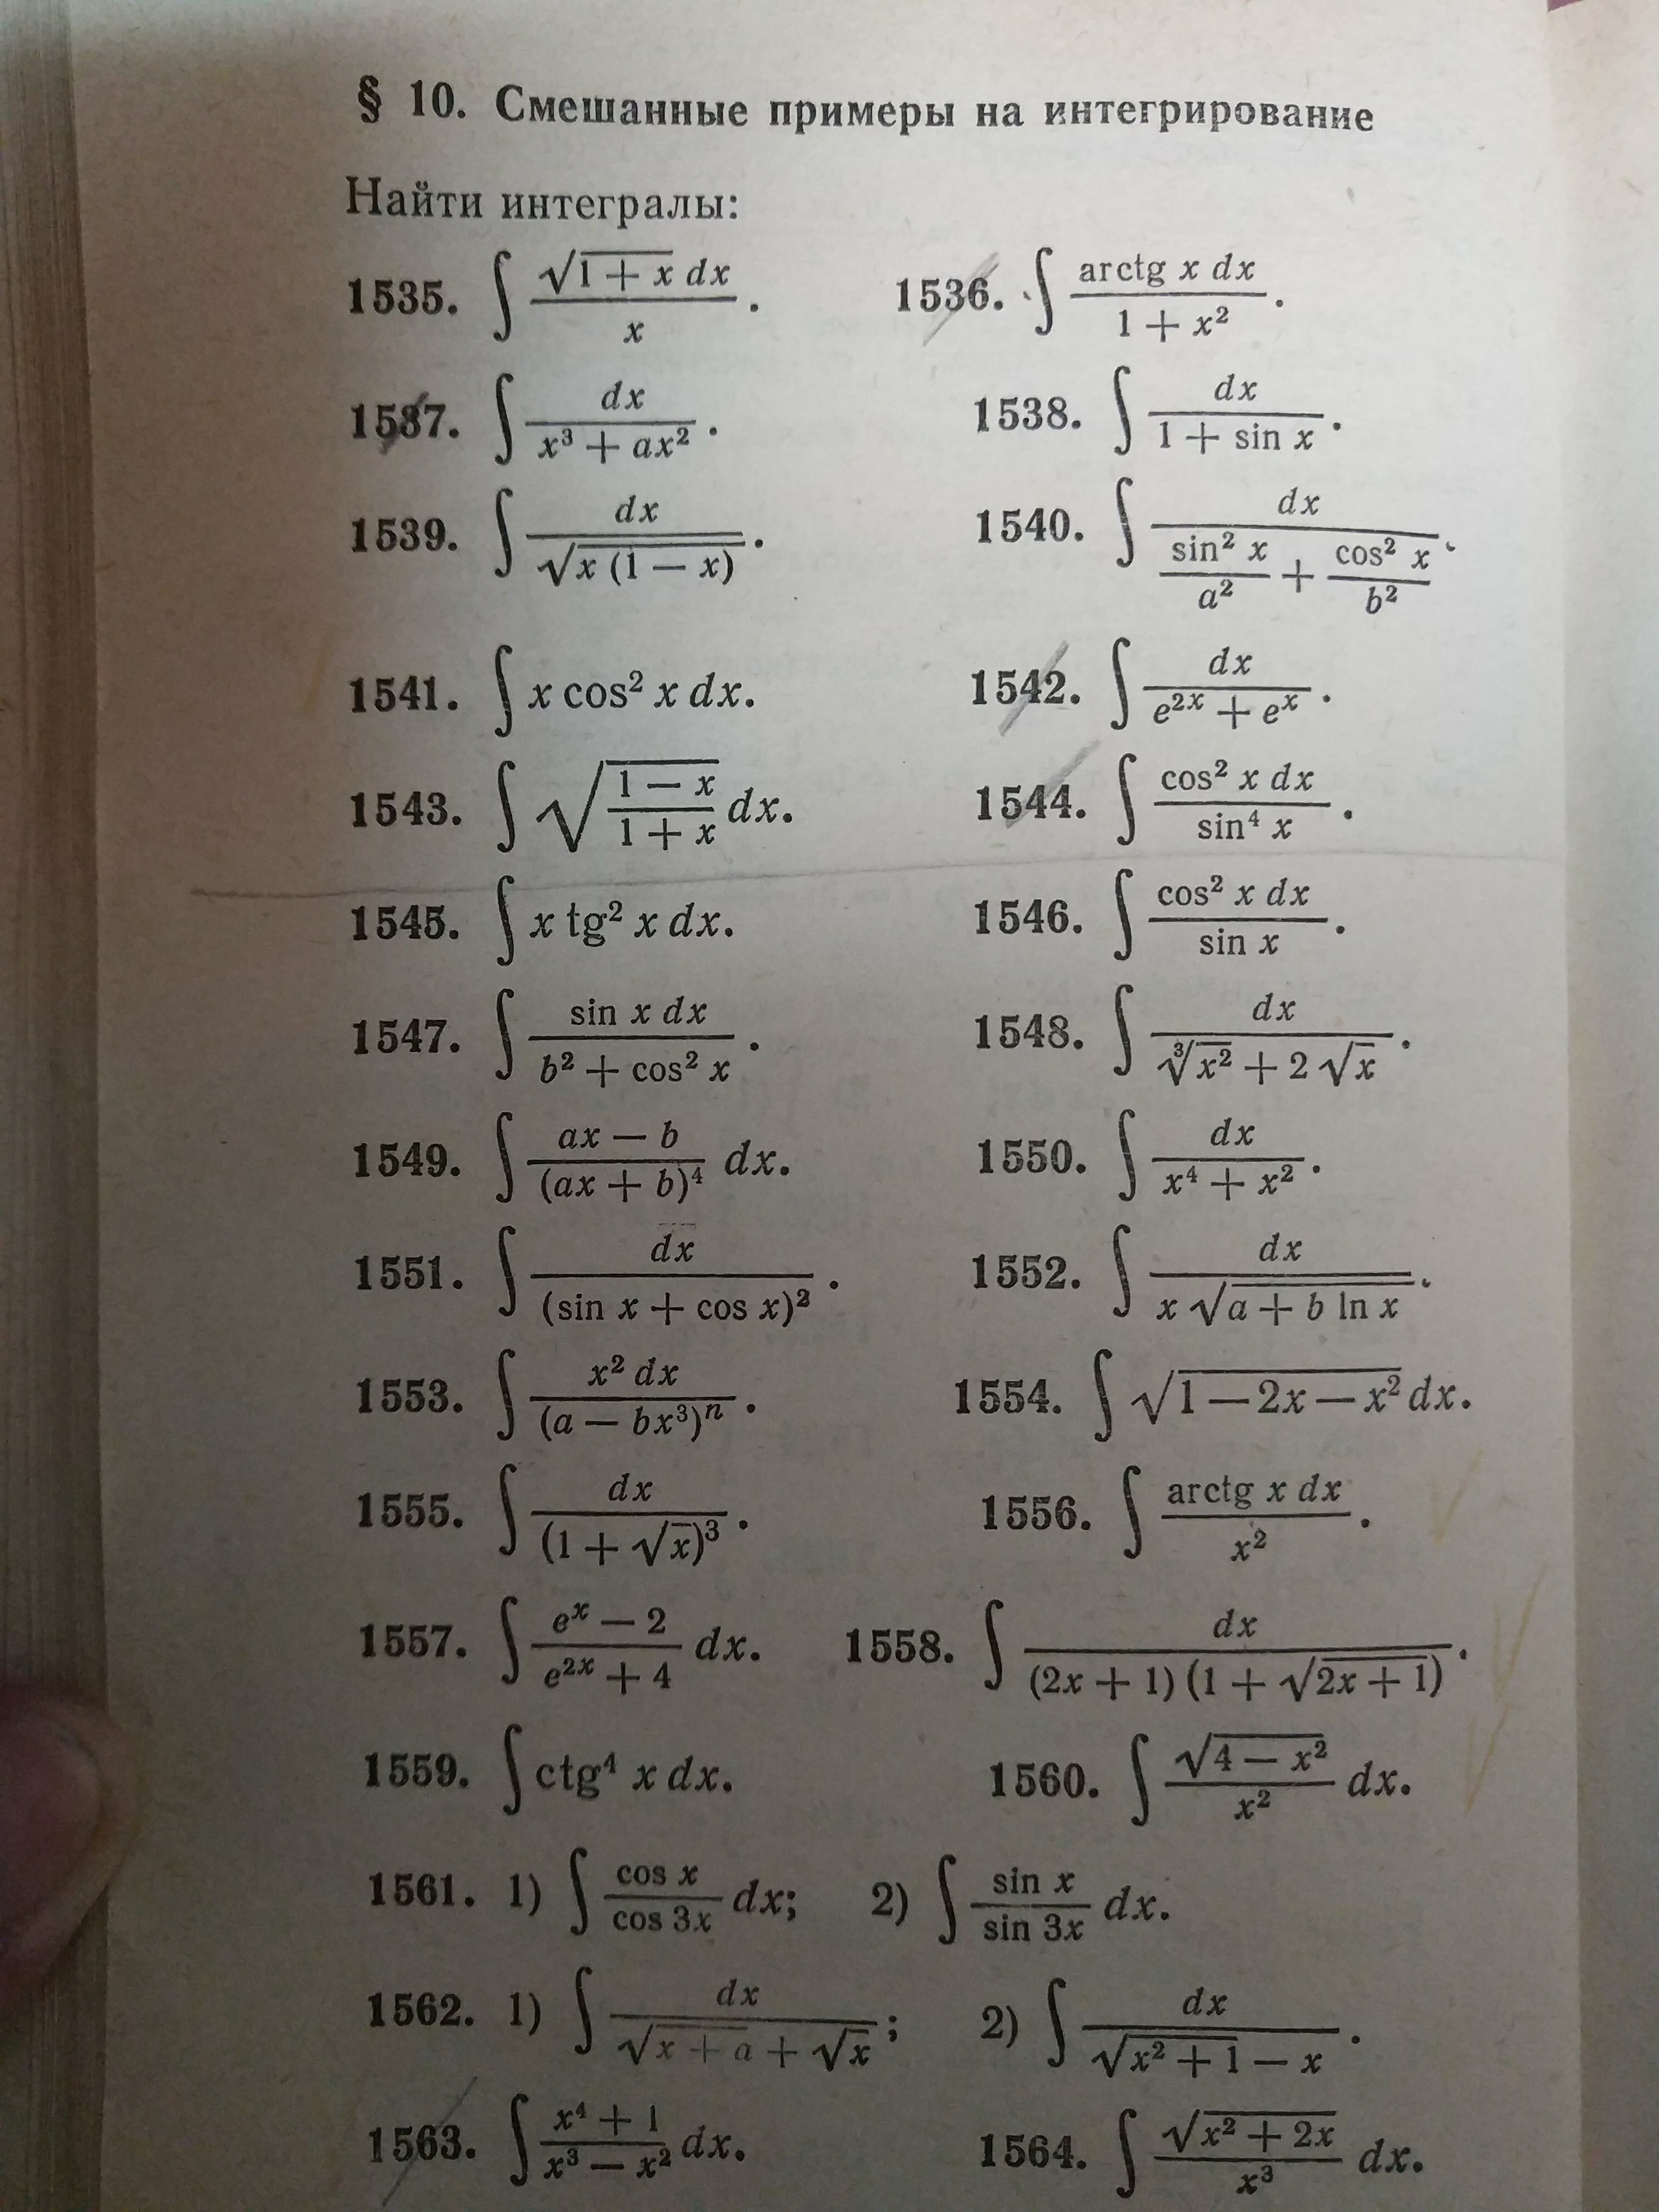 § 10. Смешанные примеры на интегрирование
Найти интегралы:
1535. ∫ √(1 + x) dx / x . 1536. ∫ arctg x dx / (1 + x²) .
1537. ∫ dx / (x³ + ax²) . 1538. ∫ dx / (1 + sin x) .
1539. ∫ dx / √(x (1 — x)) . 1540. ∫ dx / (sin² x / a² + cos² x / b²) .
1541. ∫ x cos² x dx. 1542. ∫ dx / (e²ˣ + eˣ) .
1543. ∫ √((1 — x) / (1 + x)) dx. 1544. ∫ cos² x dx / sin⁴ x .
1545. ∫ x tg² x dx. 1546. ∫ cos² x dx / sin x .
1547. ∫ sin x dx / (b² + cos² x) . 1548. ∫ dx / (∛(x²) + 2 √x) .
1549. ∫ (ax — b) / (ax + b)⁴ dx. 1550. ∫ dx / (x⁴ + x²) .
1551. ∫ dx / (sin x + cos x)² . 1552. ∫ dx / (x √(a + b ln x)) .
1553. ∫ x² dx / (a — bx³)ⁿ . 1554. ∫ √(1 — 2x — x²) dx.
1555. ∫ dx / (1 + √x)³ . 1556. ∫ arctg x dx / x² .
1557. ∫ (eˣ — 2) / (e²ˣ + 4) dx. 1558. ∫ dx / ((2x + 1) (1 + √(2x + 1))) .
1559. ∫ ctg⁴ x dx. 1560. ∫ √(4 — x²) / x² dx.
1561. 1) ∫ cos x / cos 3x dx; 2) ∫ sin x / sin 3x dx.
1562. 1) ∫ dx / (√(x + a) + √x) ; 2) ∫ dx / (√(x² + 1) — x) .
1563. ∫ (x⁴ + 1) / (x³ — x²) dx. 1564. ∫ √(x² + 2x) / x³ dx.